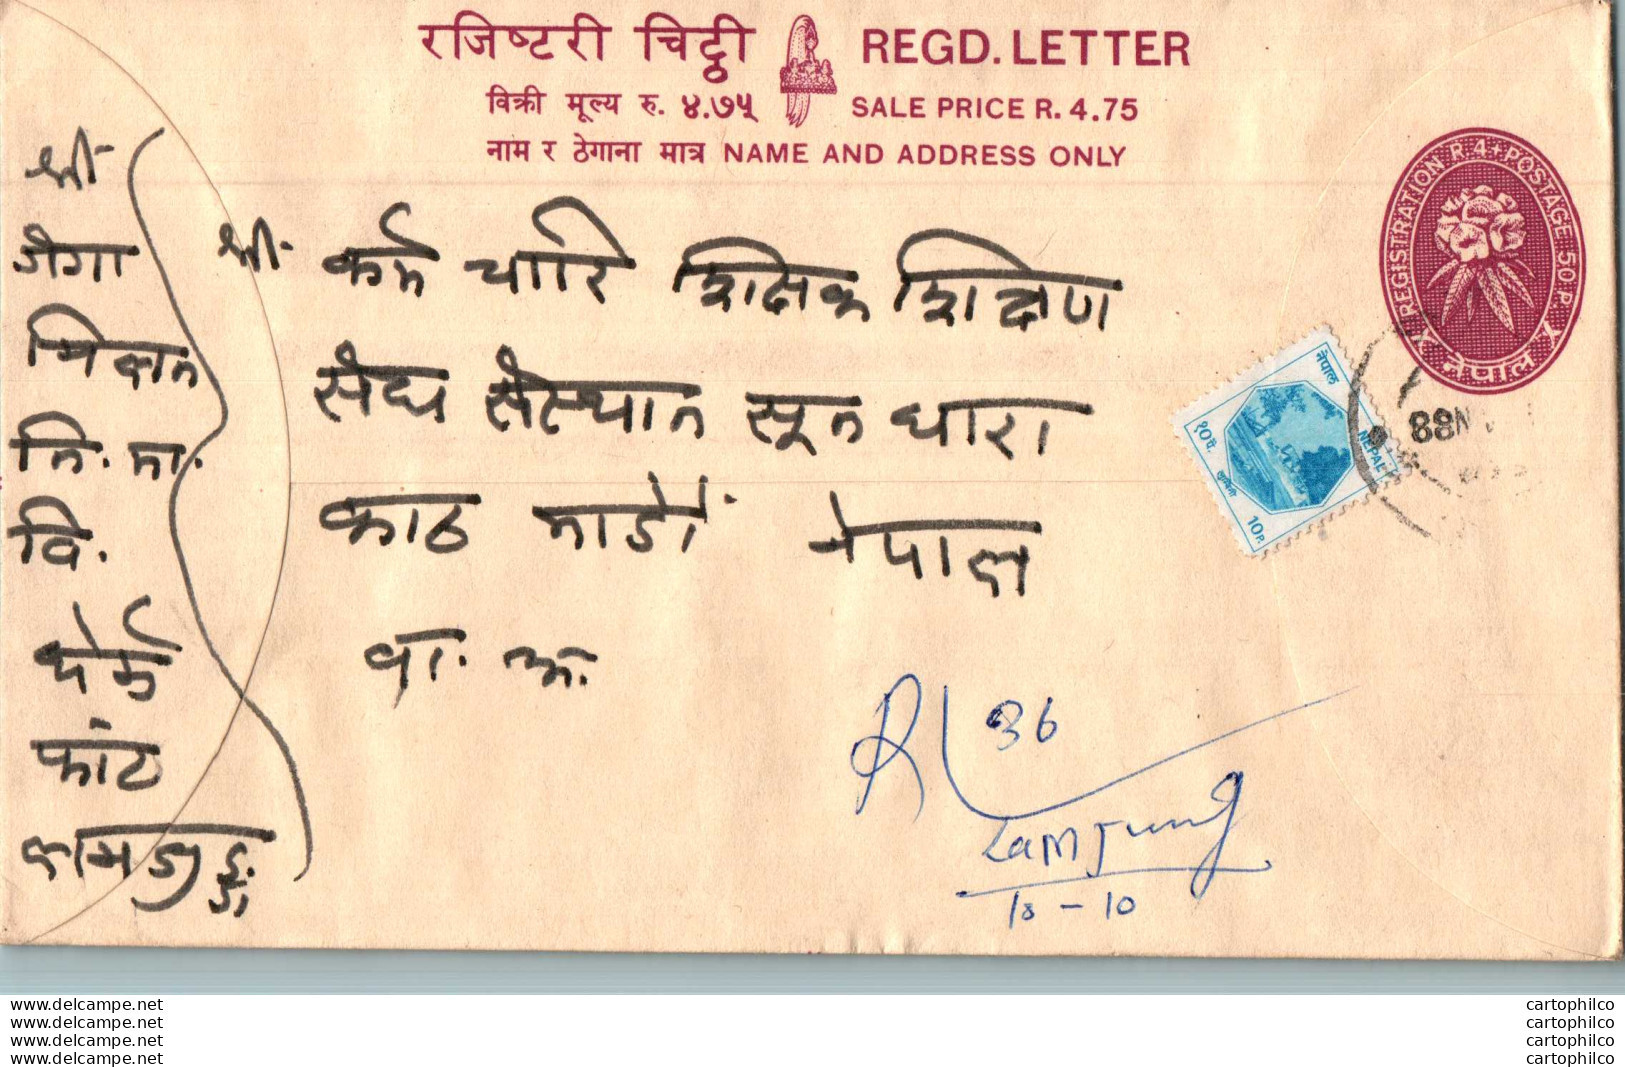 रजिष्टरी चिट्ठी REGD. LETTER
विक्री मूल्य रु. ४.७५ SALE PRICE R. 4.75
नाम र ठेगाना मात्र NAME AND ADDRESS ONLY
REGISTRATION R.4+POSTAGE 50P.
नेपाल
नेपाल
१०पै.
NEPAL
10P.
88
श्री
गंगा
मिलन
नि. मा.
वि.
फांट
लमजुङ्ग
श्री कर्मचारि शिक्षक शिक्षण
संघ संस्थान सून धारा
काठ माडौं नेपाल
वा. अ.
R L 36
Lamjung
10-10
www.delcampe.net cartophilco
www.delcampe.net cartophilco
www.delcampe.net cartophilco
www.delcampe.net cartophilco